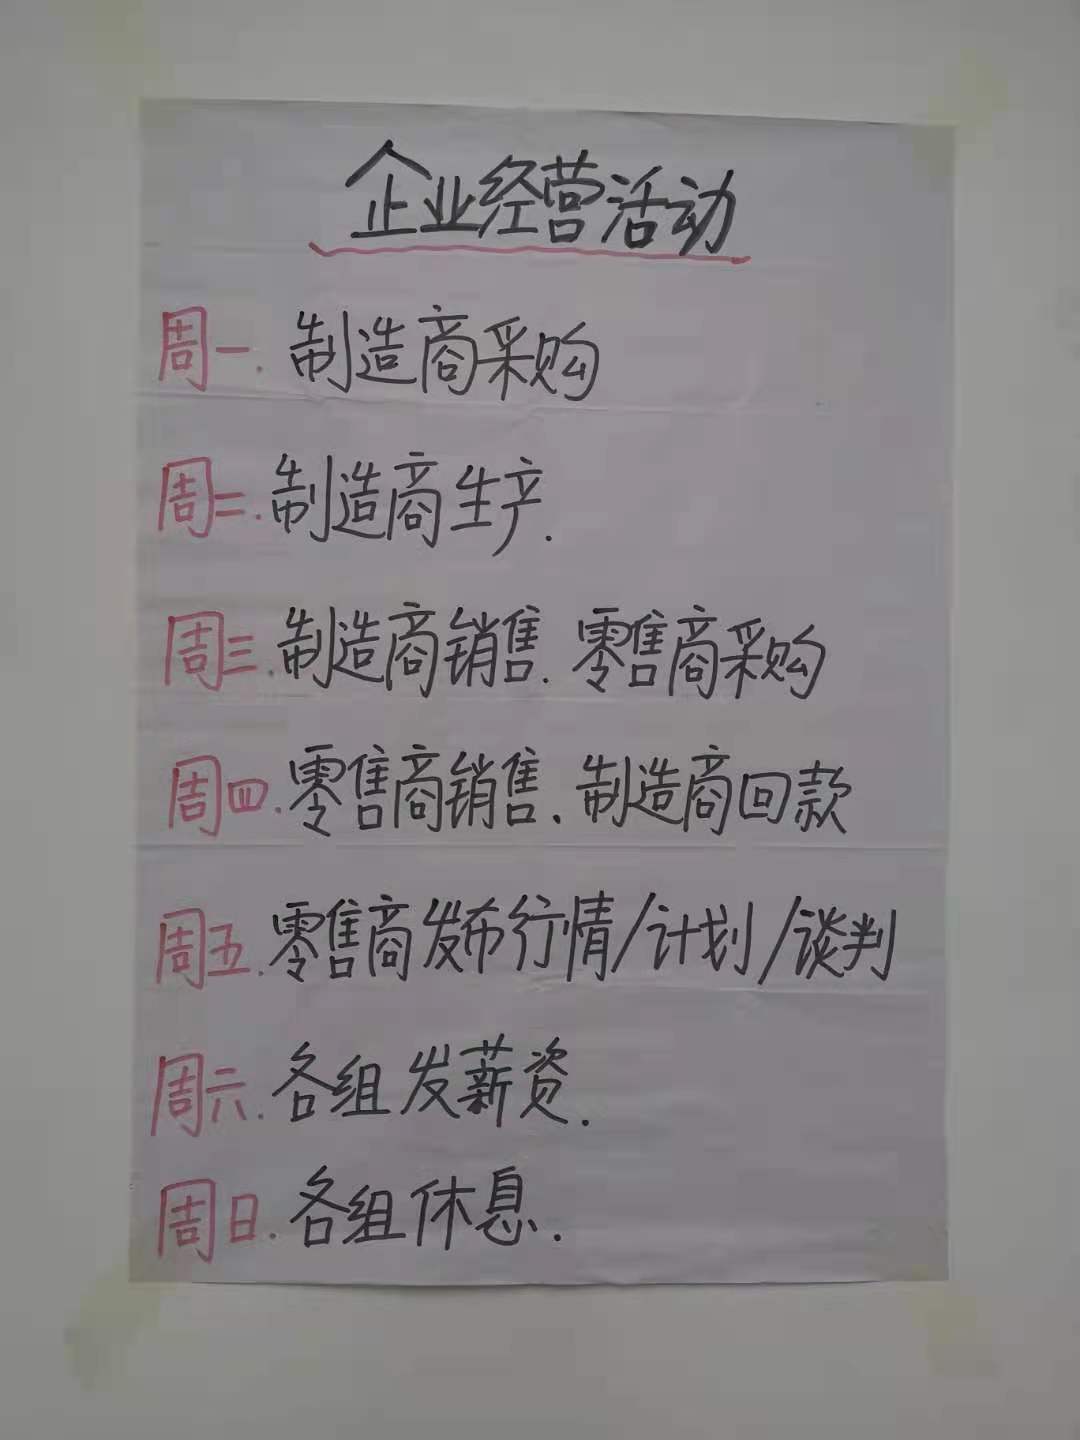 企业经营活动
周一. 制造商采购
周二. 制造商生产.
周三. 制造商销售. 零售商采购
周四. 零售商销售. 制造商回款
周五. 零售商发布行情/计划/谈判
周六. 各组发薪资.
周日. 各组休息.